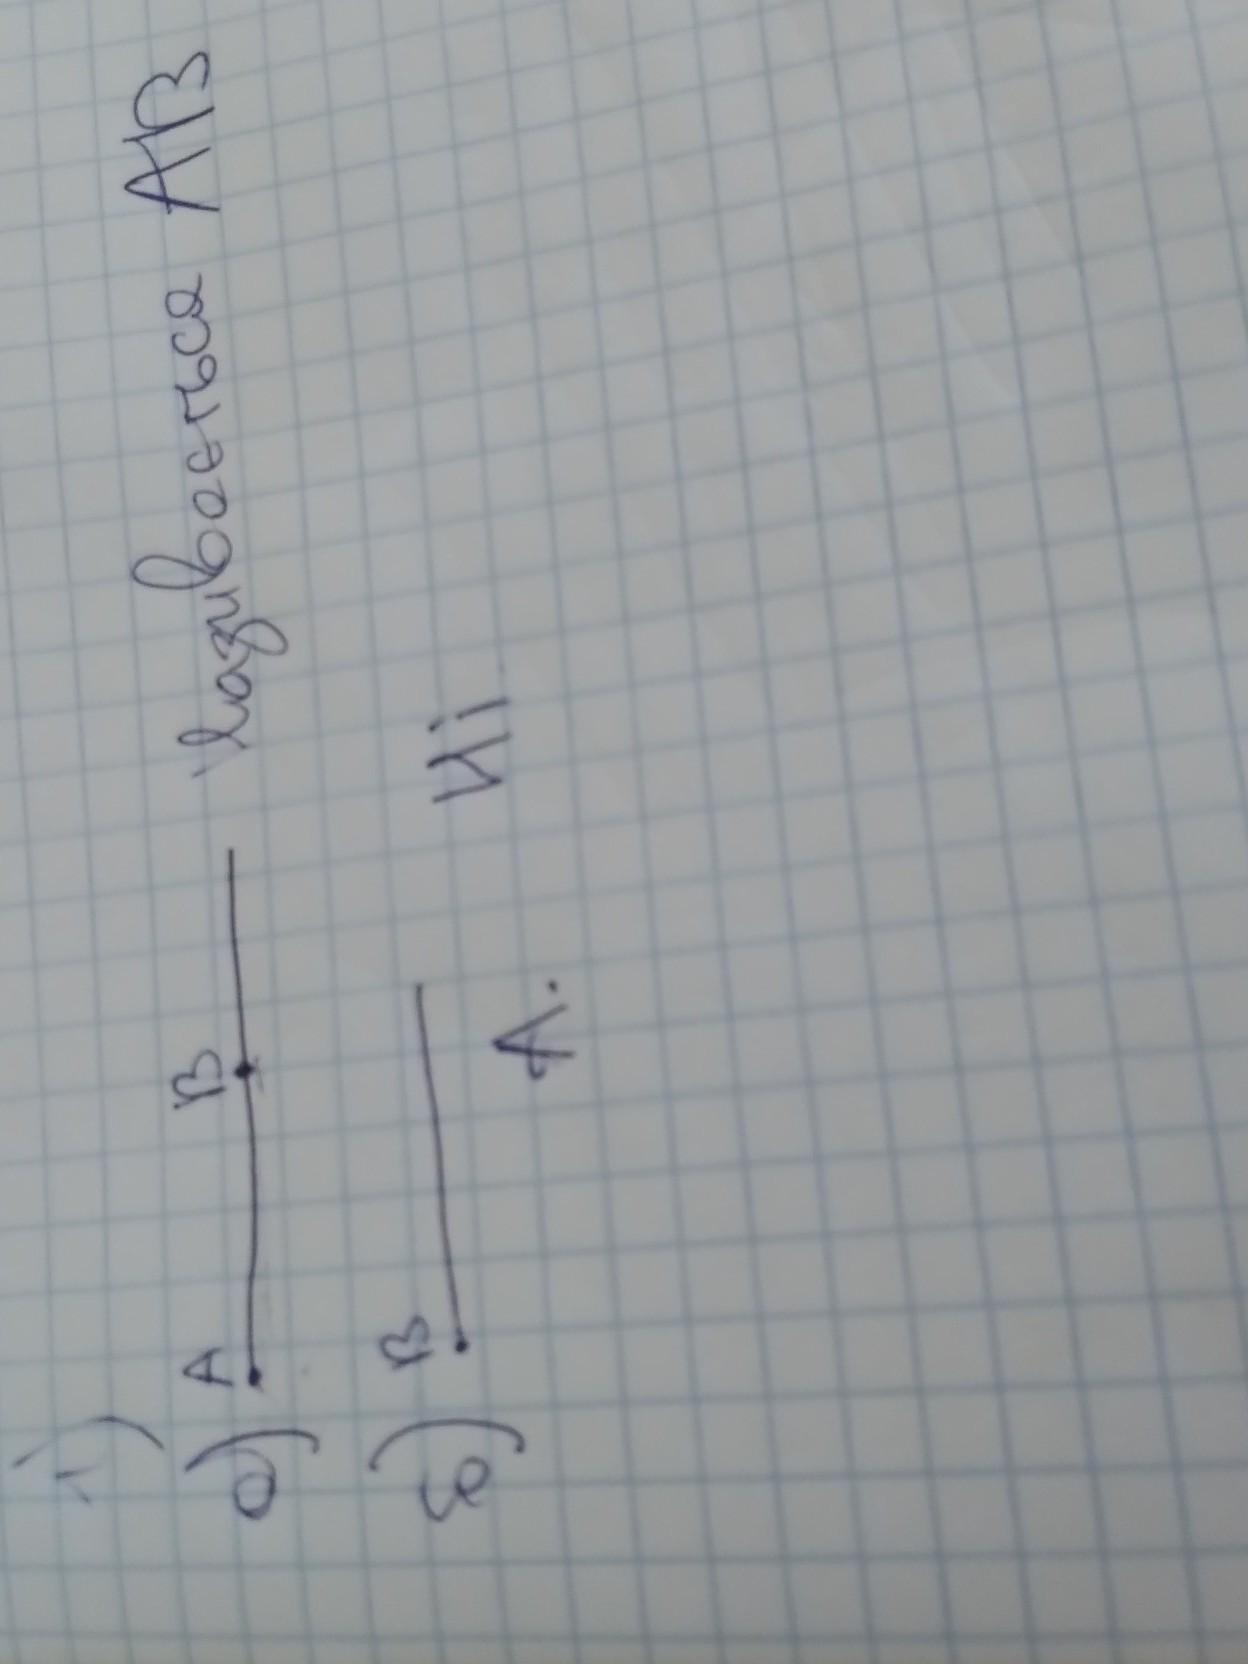 1)
а) A B називаеться AB
б) B A. Ні